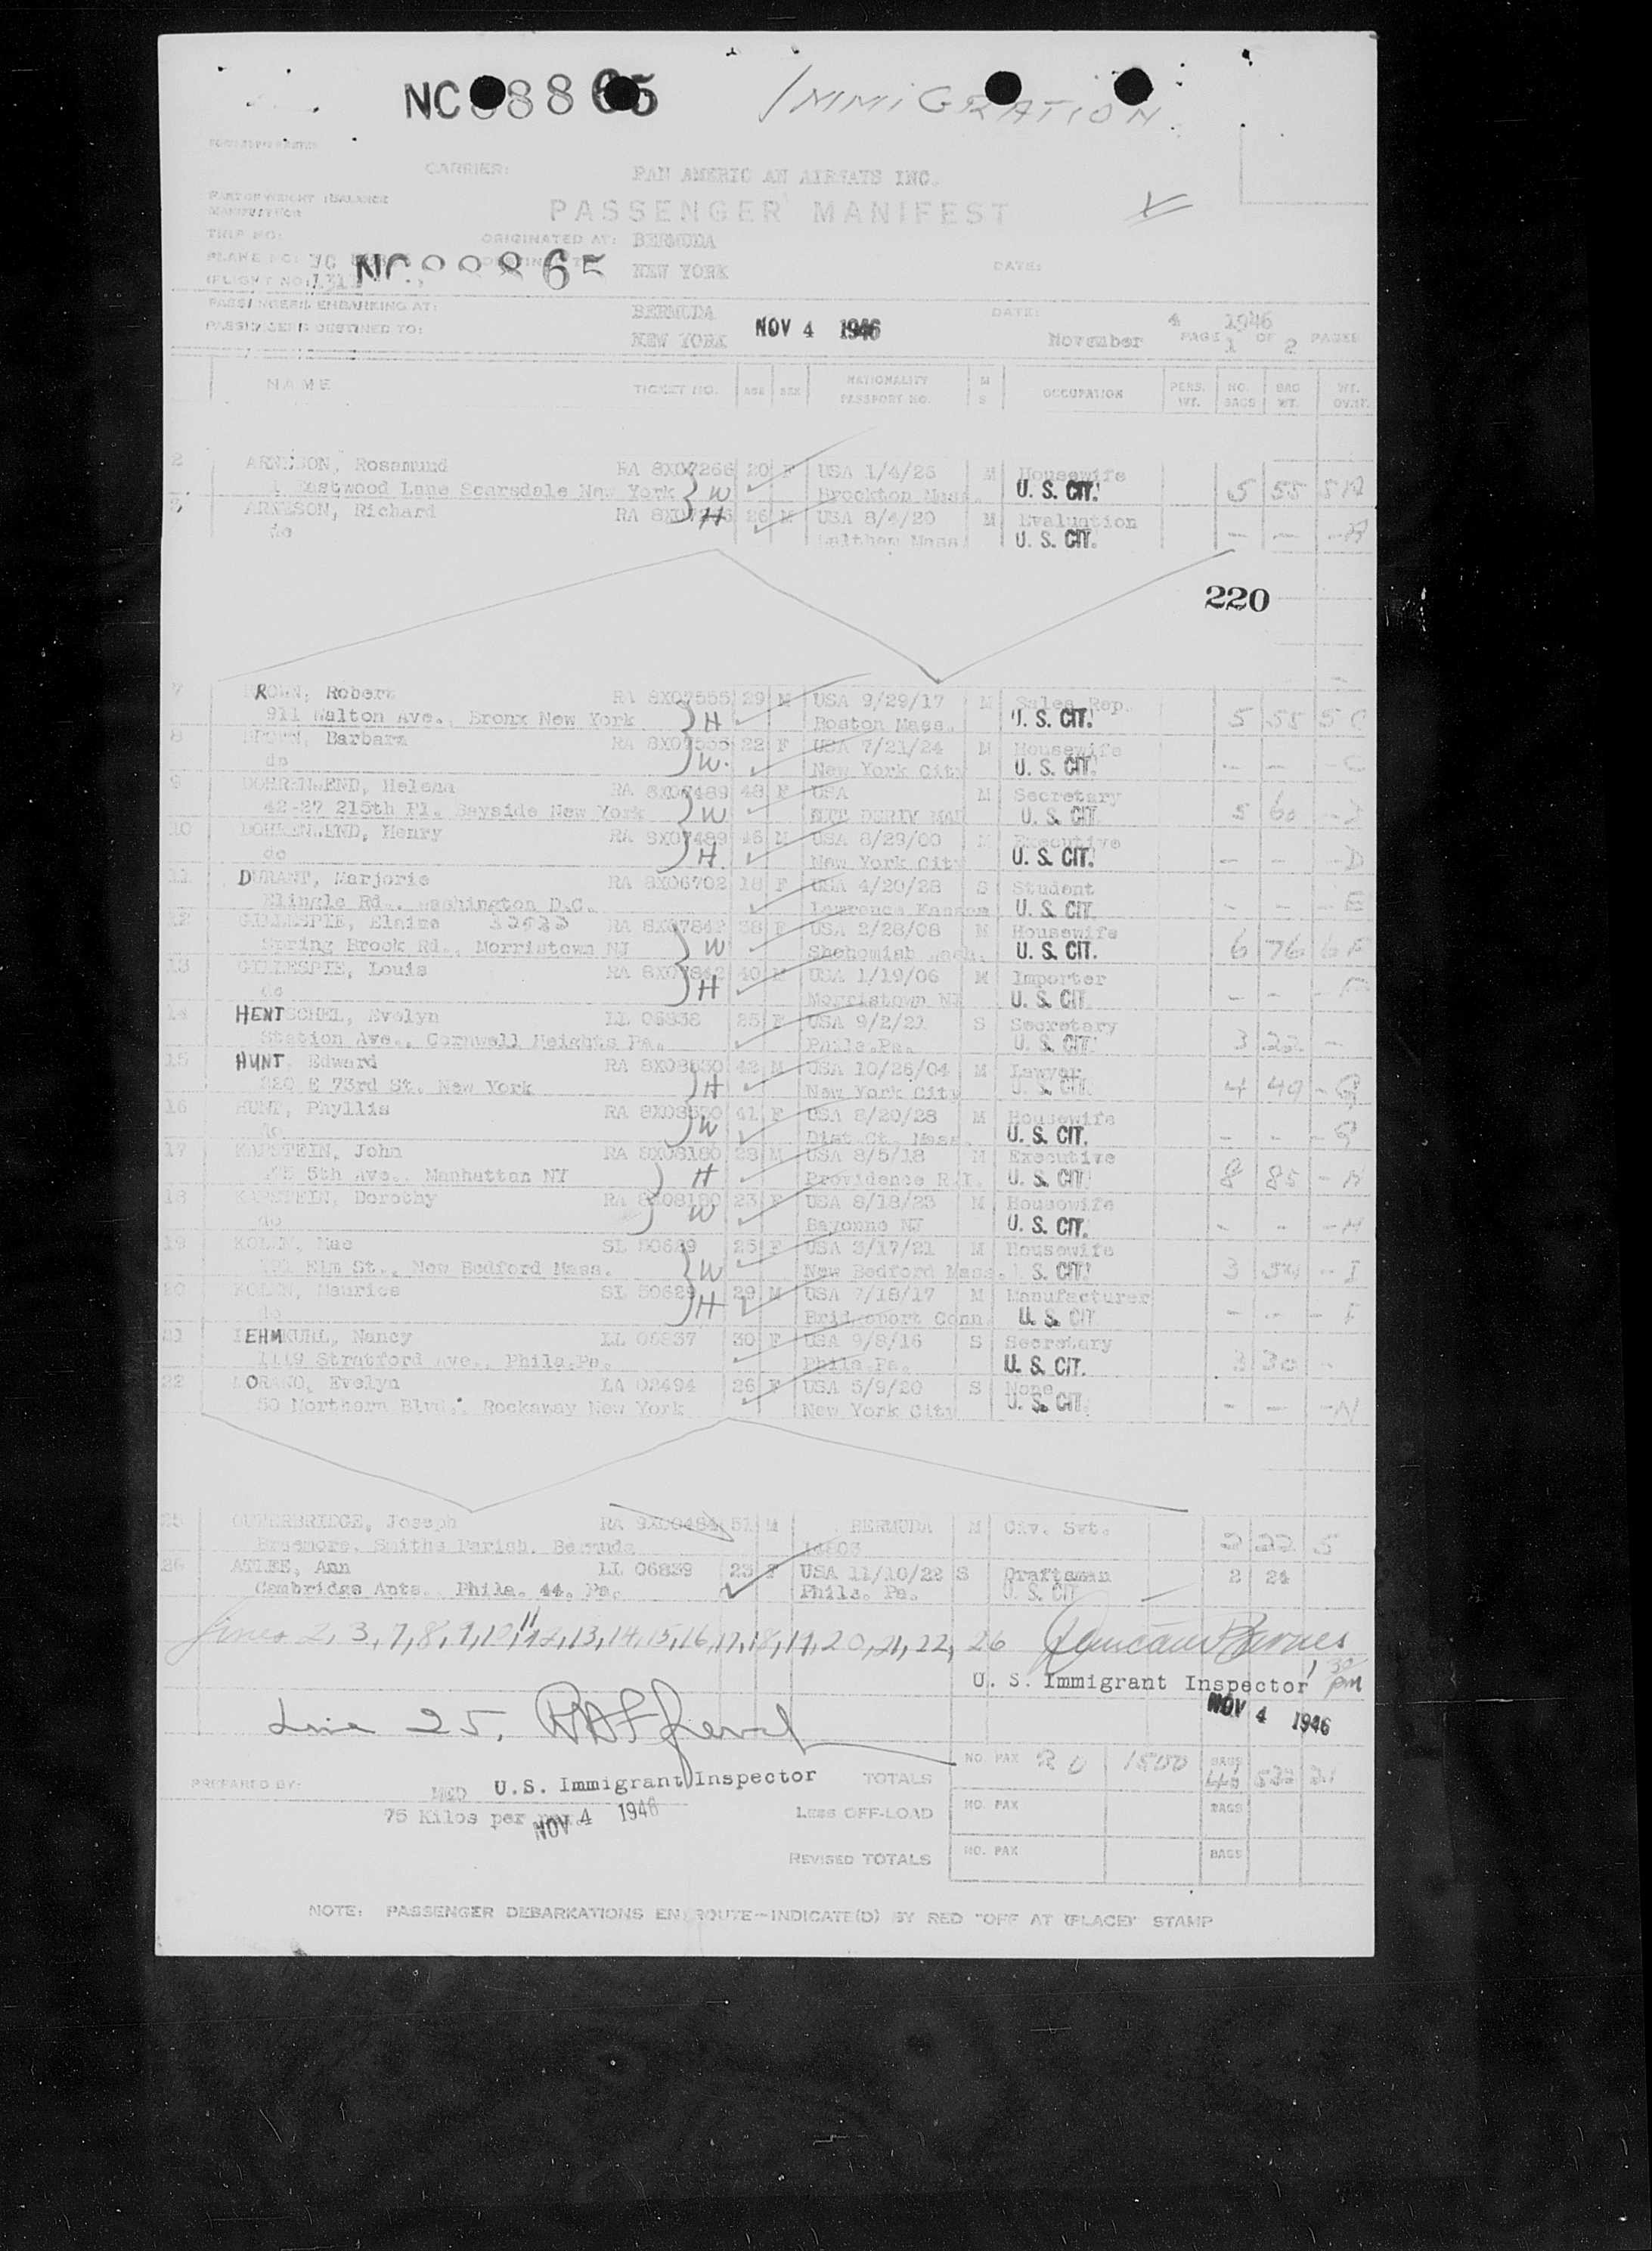 NC88865 IMMIGRATION
CARRIER: PAN AMERICAN AIRWAYS INC.
PASSENGER MANIFEST
TRIP NO: ORIGINATED AT: BERMUDA
PLANE NO: NC88865 NEW YORK DATE:
FLIGHT NO:
PASSENGERS EMBARKING AT: BERMUDA DATE: 4 1946
PASSENGERS DESTINED TO: NEW YORK NOV 4 1946 November PAGE 1 OF 2 PAGES
NAME TICKET NO. AGE SEX NATIONALITY PASSPORT NO. M S OCCUPATION PERS. WT. NO. BAGS BAG WT. WT. OVWT.
2 ARNESON, Rosamund RA 8X07266 20 F USA 1/4/26 M Housewife
Eastwood Lane Scarsdale New York } W Brockton Mass. U. S. CIT. 5 55 5 A
ARNESON, Richard RA H 26 M USA 8/4/20 M Evaluation
do Waltham Mass. U. S. CIT. - - - A
220
7 BROWN, Robert RA 8X07555 29 M USA 9/29/17 M Sales Rep.
911 Walton Ave., Bronx New York } H Boston Mass. U. S. CIT. 5 55 5 C
8 BROWN, Barbara RA 8X07555 22 F USA 7/21/24 M Housewife
do } W. New York City U. S. CIT. - - - C
9 DOHRENWEND, Helena RA 8X07489 48 F USA M Secretary
42-27 215th Pl. Bayside New York } W U. S. CIT. 5 60 -
10 DOHRENWEND, Henry RA 8X07489 46 M USA 8/29/00 M Executive
do } H. New York City U. S. CIT. - - - D
11 DURANT, Marjorie RA 8X06702 18 F USA 4/20/28 S Student
Klingle Rd., Washington D.C. Lawrence Kansas U. S. CIT. - - - E
12 GILLESPIE, Elaine RA 8X07842 38 F USA 2/28/08 M Housewife
Spring Brook Rd., Morristown NJ } W Snohomish Wash. U. S. CIT. 6 76 6 F
13 GILLESPIE, Louis RA 8X07842 40 M USA 1/19/06 M Importer
do } H Morristown NJ U. S. CIT. - - - F
14 HENTSCHEL, Evelyn LL 06838 25 F USA 9/2/21 S Secretary
Station Ave., Cornwell Heights Pa. Phila.Pa. U. S. CIT. 3 22 -
15 HUNT, Edward RA 8X08530 42 M USA 10/26/04 M Lawyer
220 E 73rd St. New York } H New York City U. S. CIT. 4 49 - G
16 HUNT, Phyllis RA 8X08530 41 F USA 8/20/28 M Housewife
do } W Dist Ct. Mass. U. S. CIT. - - - G
17 KAPSTEIN, John RA 8X08180 28 M USA 8/5/18 M Executive
5th Ave., Manhattan NY } H Providence R.I. U. S. CIT. 8 85 - H
18 KAPSTEIN, Dorothy RA 8X08180 23 F USA 8/18/23 M Housewife
do } W Bayonne NJ U. S. CIT. - - - H
19 KOLEN, Mae SL 50629 25 F USA 3/17/21 M Housewife
Elm St., New Bedford Mass. } W New Bedford Mass. U. S. CIT. 3 54 - I
20 KOLEN, Maurice SL 50629 29 M USA 7/18/17 M Manufacturer
do } H Bridgeport Conn. U. S. CIT. - - -
21 LEHMKUHL, Nancy LL 06837 30 F USA 9/8/16 S Secretary
1119 Stratford Ave., Phila.Pa. Phila Pa. U. S. CIT. 3 30 -
22 MORANO, Evelyn LA 02494 26 F USA 5/9/20 S None
50 Northern Blvd., Rockaway New York New York City U. S. CIT. - - - N
25 OUTERBRIDGE, Joseph RA 9X00484 51 M BERMUDA M Civ. Svt.
Braemore, Smiths Parish, Bermuda 14803 2 22 5
26 ATLEE, Ann LL 06839 23 F USA 11/10/22 S Draftsman 2 24
Cambridge Apts. Phila. 44, Pa. Phila. Pa. U. S. CIT
Lines 2, 3, 7, 8, 9, 10, 11, 12, 13, 14, 15, 16, 17, 18, 19, 20, 21, 22, 26 Duncan Barnes
U. S. Immigrant Inspector 1 30 PM
NOV 4 1946
Line 25,
NO. PAX 20 1500 BAGS 46 532 21
PREPARED BY: U.S. Immigrant Inspector TOTALS
75 Kilos per pax. NOV 4 1946 LESS OFF-LOAD NO. PAX BAGS
REVISED TOTALS NO. PAX BAGS
NOTE: PASSENGER DEBARKATIONS EN ROUTE—INDICATE(D) BY RED "OFF AT (PLACE)" STAMP